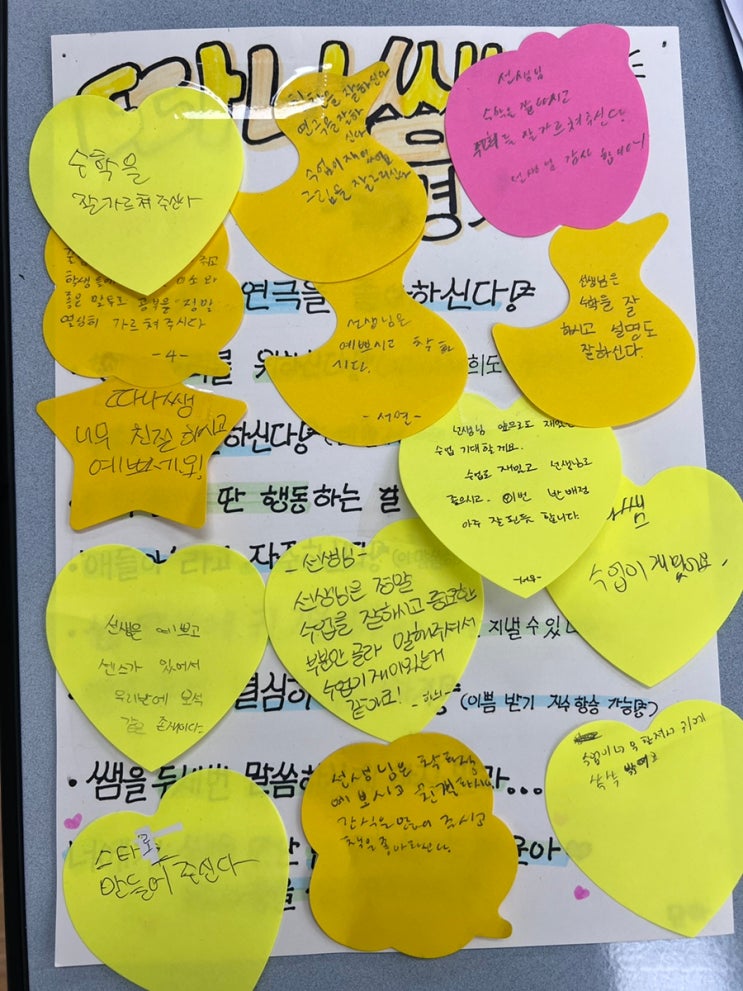 따나쌤
수학을
잘 가르쳐 주신다
잘하신다
연극을 잘하
신다
수업이 재밌었
그림을 잘 그리신다
선생님
수학을 잘 하시고
잘 가르쳐 주신다.
선생님 감사 합니다
주고
학생들에 미소와
좋은 말투로 공부을 정말
열심히 가르쳐 주시다
-4-
연극을
하신다
선생님은
예쁘시고 착하
시다.
-서연-
선생님은
수학을 잘
하시고 설명도
잘하신다.
희도
따나쌤
너무 친절 하시고
예쁘세요!
하신다
선생님 앞으로도 재밌는
수업 기대할게요.
수업도 재밌고 선생님도
좋으시고. 이번 반 배정
아주 잘 된듯 합니다.
딴 행동하는 걸
쌤
수업이 재밌어요.
선생님
선생님은 정말
수업을 잘하시고 중요한
부분만 골라 말해주셔서
수업이 재미있는거
같아요!
지낼 수 있
선생은 예쁘고
센스가 있어서
우리반에 보석
같은 존재이다.
열심히
(이쁨 받기 지수 항승 가능)
쌤을 두세번 말씀하
가...
선생님은 착하상
예쁘시고
간식을 만들어 주시고
책을 좋아하신다.
수업이 너무 귀에
쏙쏙
스타
만들어 주신다